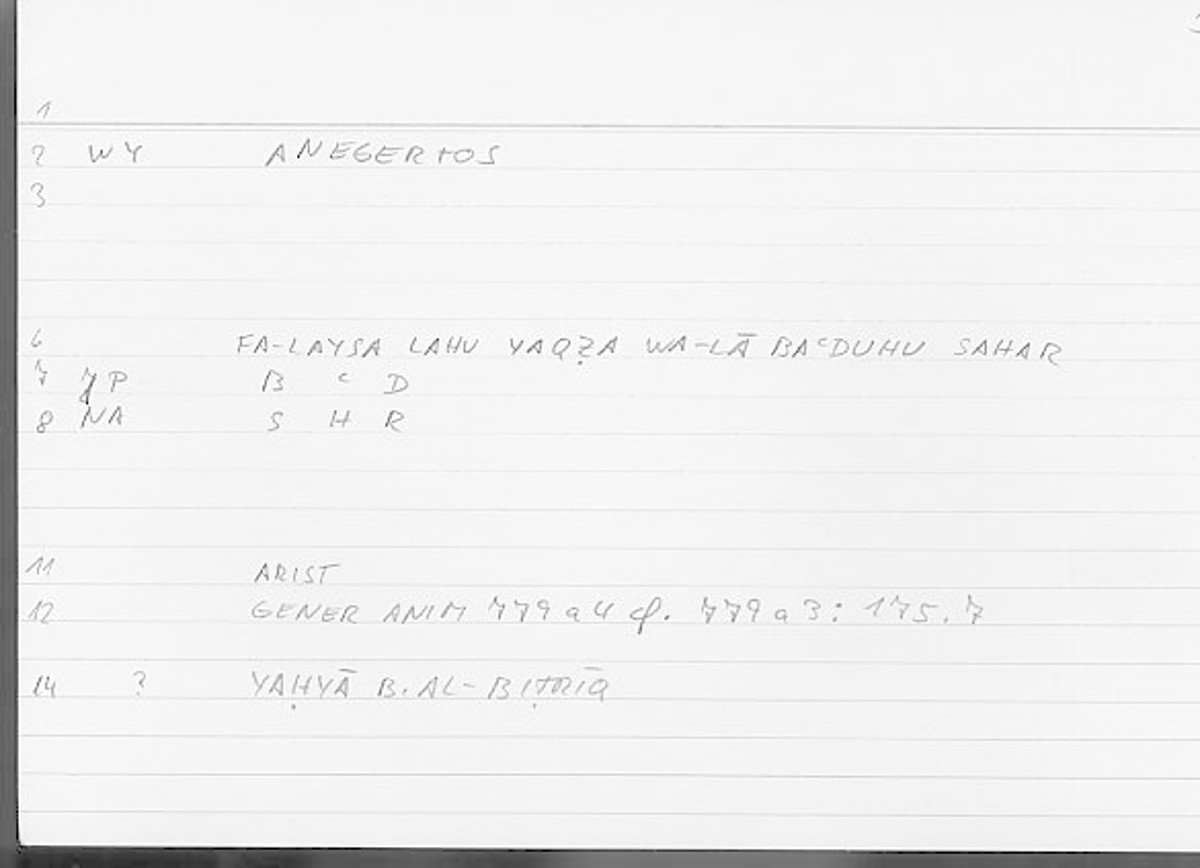 1
2 WY ANEGERTOS
3
6 FA-LAYSA LAHU YAQẒA WA-LĀ BAʿDUHU SAHAR
7 JP B ʿ D
8 NA S H R
11 ARIST
12 GENER ANIM 779a4 cf. 779a3: 175.7
14 ? YAḤYĀ B. AL-BIṬRĪQ